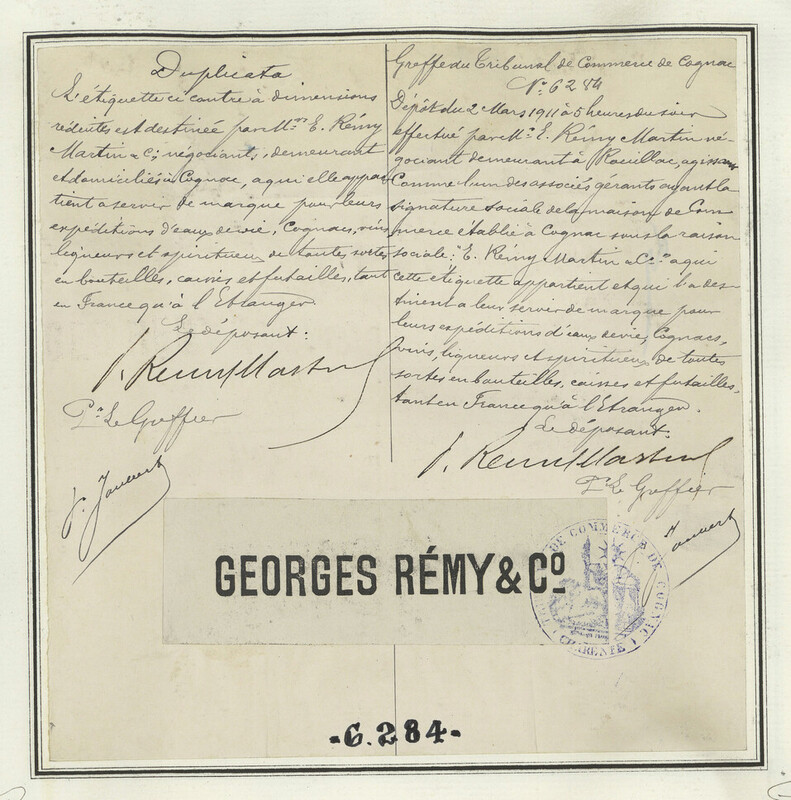 Duplicata
L'étiquette ci contre à dimensions
réduites est destinée par Mrs E. Rémy
Martin & Cie, négociants, demeurant
et domiciliés à Cognac, a qui elle appar
tient a servir de marque pour leurs
expéditions d'eaux de vie, Cognacs, vins
liqueurs et spiritueux de toutes sortes
en bouteilles, caisses et futailles, tant
en France qu'à l'Etranger.
Le déposant:
P. Rémy Martin
Pr Le Greffier
Greffe du Tribunal de Commerce de Cognac
No 6284
Dépôt du 2 Mars 1911 à 5 heures du soir
effectué par Mr E. Rémy Martin né-
gociant demeurant à Rouillac, agissant
Comme l'un des associés gérants ayant la
signature sociale de la maison de Com
merce établie à Cognac sous la raison
sociale: E. Rémy Martin & Co a qui
cette étiquette appartient et qui l'a des-
tinent a leur servir de marque pour
leurs expéditions d'eaux de vie, Cognacs,
vins, liqueurs et spiritueux de toutes
sortes en bouteilles, caisses et futailles,
tant en France qu'à l'Etranger.
Le déposant:
P. Rémy Martin
Pr Le Greffier
GEORGES RÉMY & Co
TRIB. DE COMMERCE DE COGNAC
(CHARENTE)
-6.284-